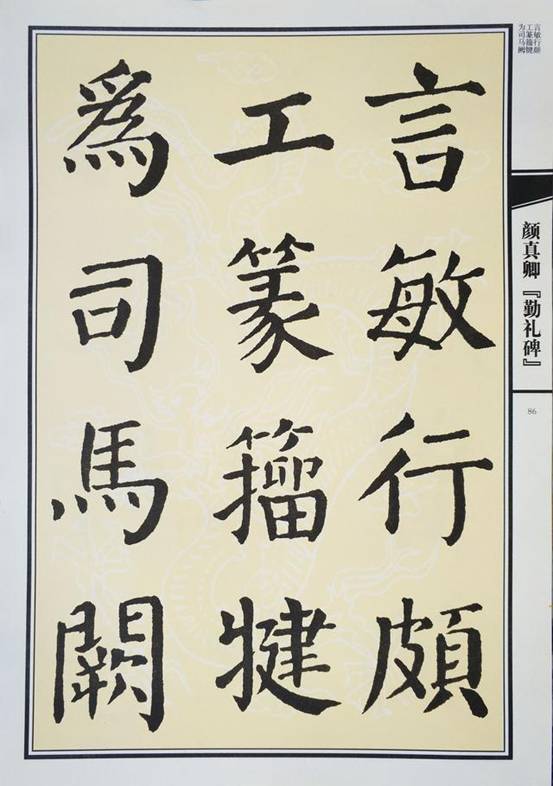 言敏行颇
工篆籀犍
为司马阙
言敏行頗
工篆籕犍
爲司馬闕
颜真卿『勤礼碑』
86